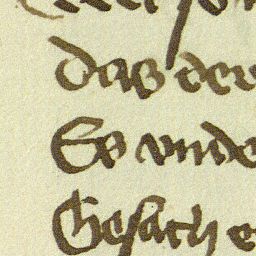 das der
Es vnde
Gesach e